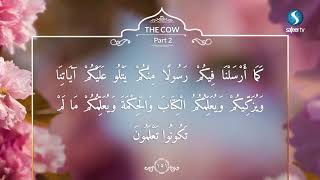 THE COW
Part 2
safeer tv
كَمَا أَرْسَلْنَا فِيكُمْ رَسُولًا مِنْكُمْ يَتْلُو عَلَيْكُمْ آيَاتِنَا
وَيُزَكِّيكُمْ وَيُعَلِّمُكُمُ الْكِتَابَ وَالْحِكْمَةَ وَيُعَلِّمُكُمْ مَا لَمْ
تَكُونُوا تَعْلَمُونَ
١٥١